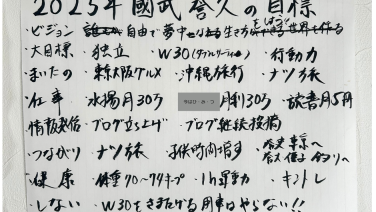 2025年 國武 誉久の目標
・ビジョン 自由で夢中 生き方 世界を作る
・大目標 ・独立 ・W30 ・行動力
・まいたの ・東大阪グルメ ・沖縄旅行 ・ナツ旅
・仕事 ・水揚月30万 月利30万 ・読書月5冊
・情報発信 ・ブログ立ち上げ ・ブログ継続投稿
・つながり ・ナツ旅 ・子供時間増す 東京へ
・健康 ・体重70〜79キープ ・1h運動 ・キントレ
・しない ・W30をさまたげる用事はやらない!!